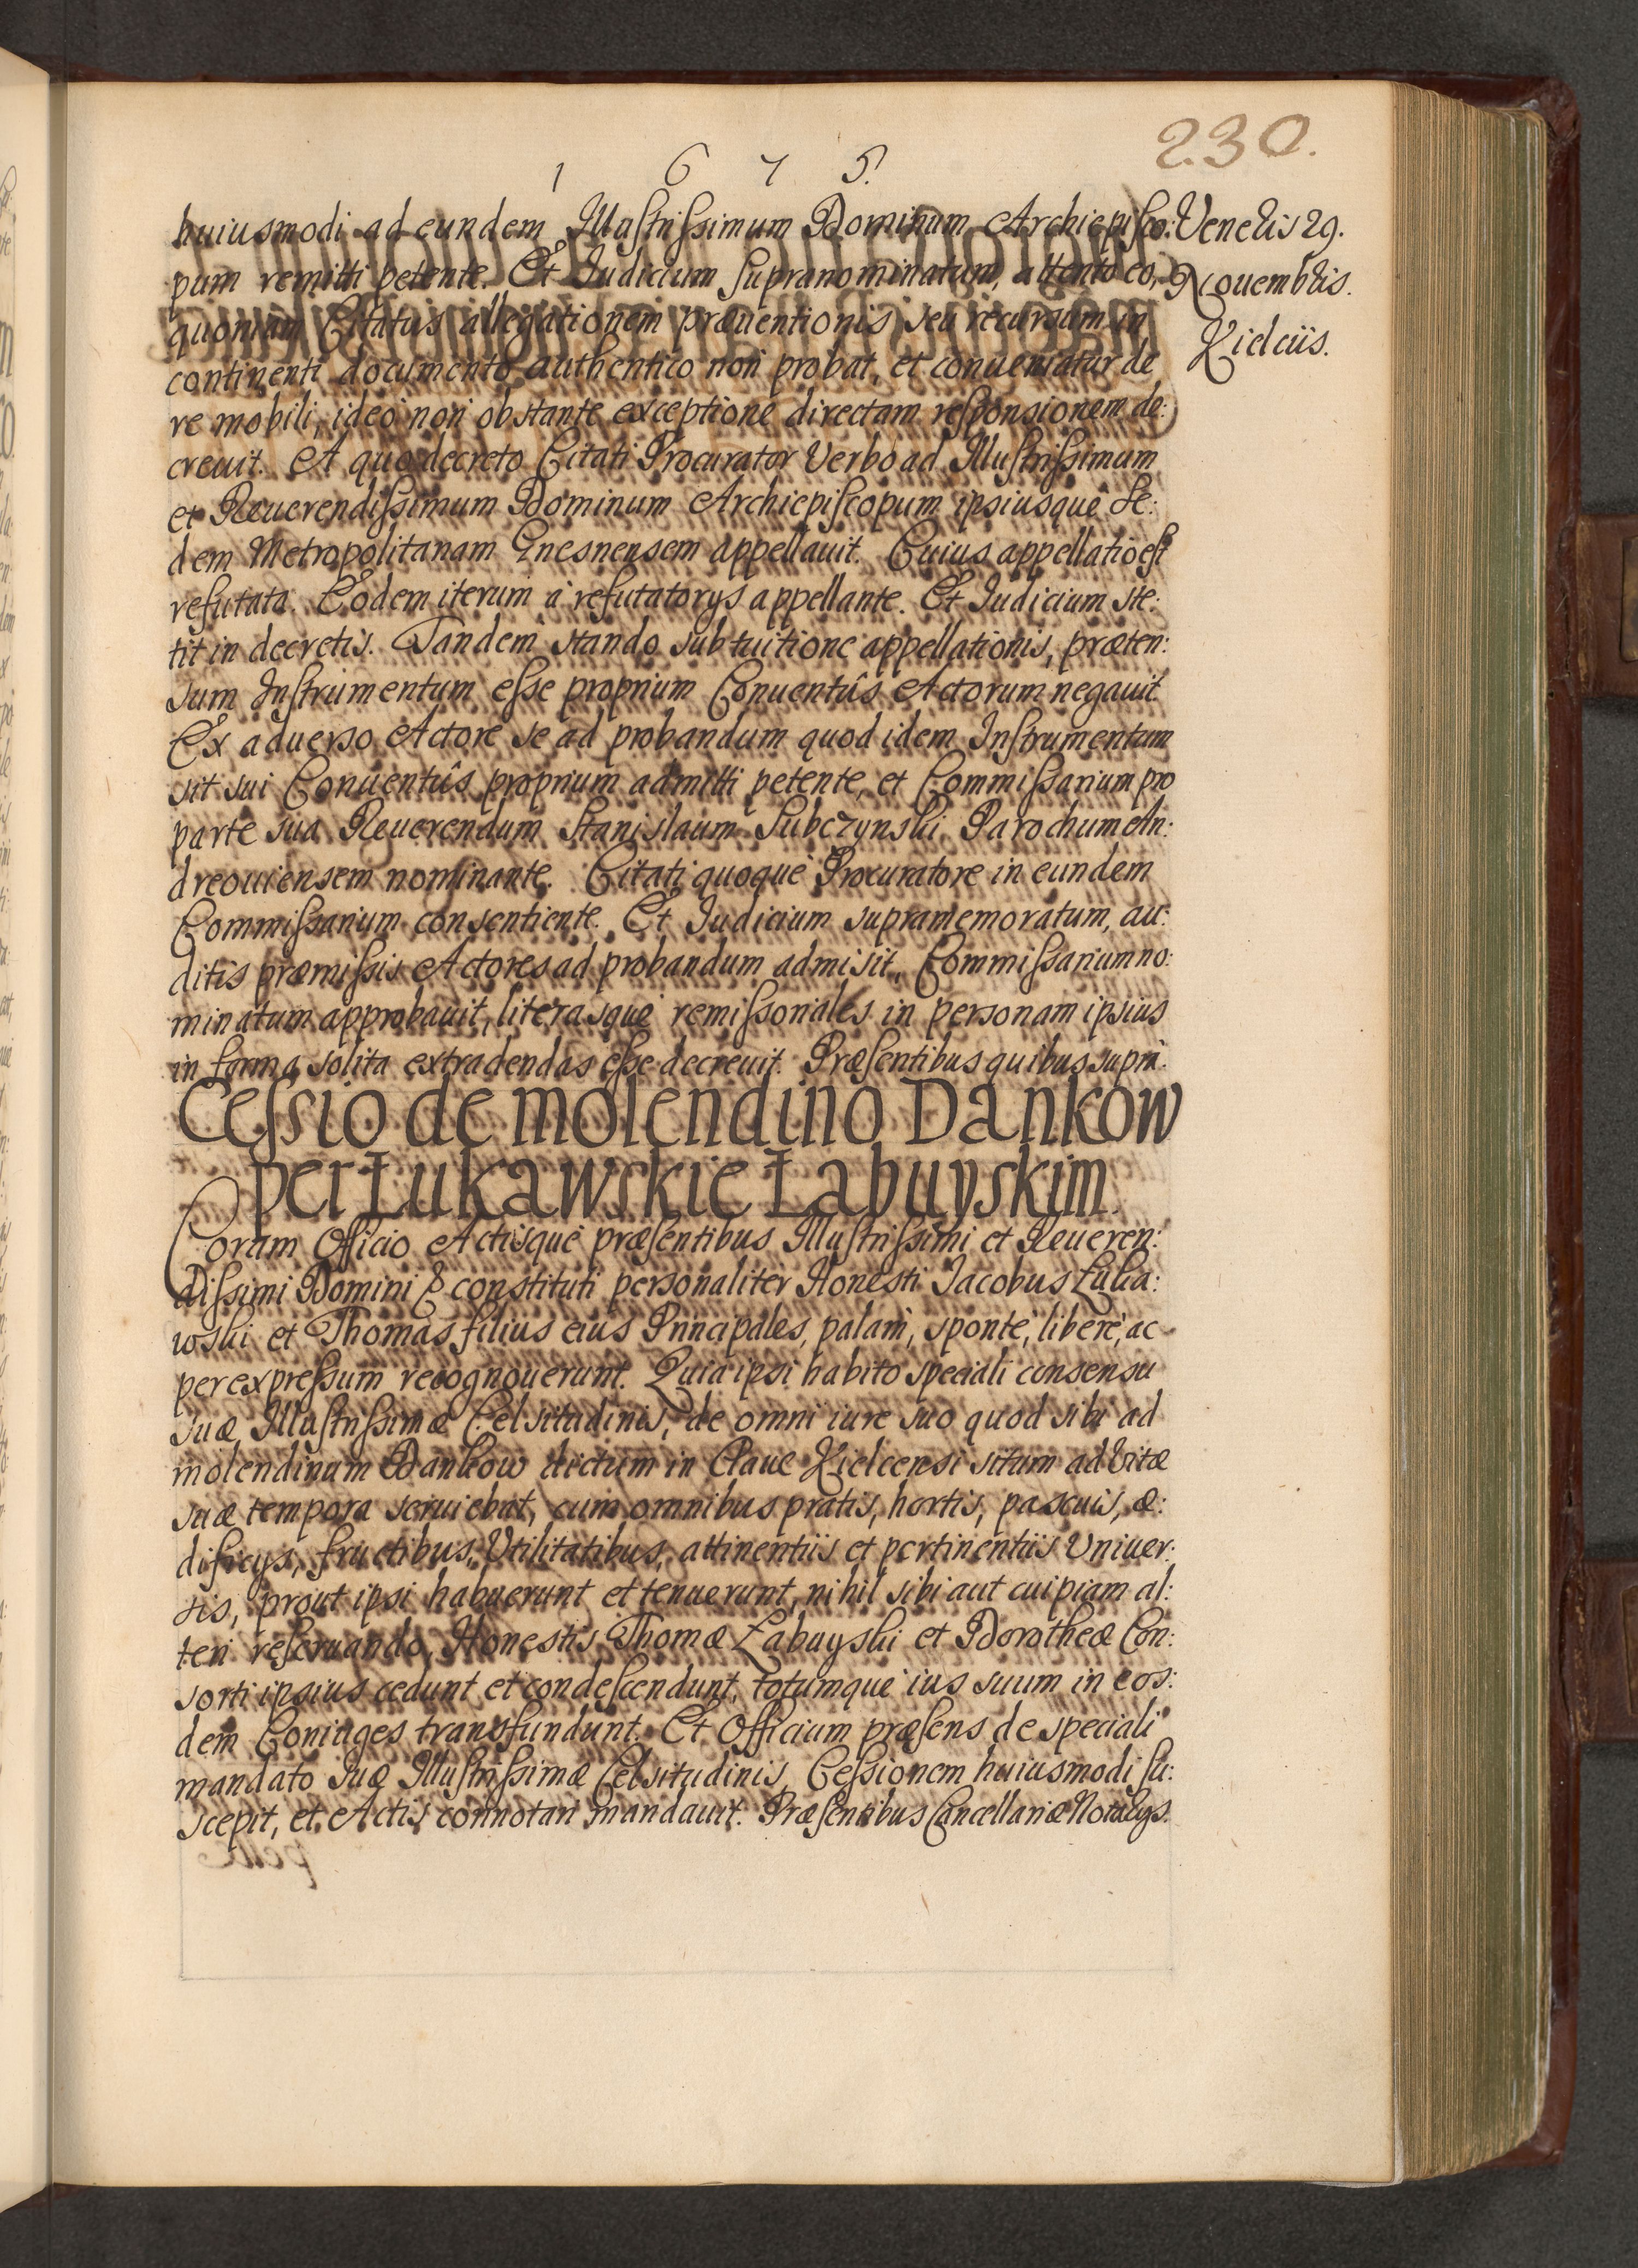 230.
1 6 7 5.
huiusmodi ad eundem Illustrissimum Dominum Archiepisco:
Veneris 29.
pum remitti petente. Et Iudicium supranominatum, attento eo,
Nouembris.
quoniam Citatus allegationem præuentionis seu recursum in
Kielciis.
continenti documento authentico non probat, et conueniatur de
re mobili, ideo non obstante exceptione directam responsionem de:
creuit. A quo decreto Citati Procurator Verbo ad Illustrissimum
et Reuerendissimum Dominum Archiepiscopum ipsiusque Se:
dem Metropolitanam Gnesnensem appellauit. Cuius appellatio est
refutata. Eodem iterum à refutatorys appellante. Et Iudicium ste:
tit in decretis. Tandem stando sub tuitione appellationis, præten:
sum Instrumentum esse proprium Conuentûs Actorum negauit
Ex aduerso Actore se ad probandum quod idem Instrumentum
sit sui Conuentûs proprium admitti petente, et Commissarium pro
parte sua Reuerendum Stanislaum Subczynski Parochum An:
dreouiensem nominante. Citati quoque Procuratore in eundem
Commissarium consentiente. Et Iudicium supramemoratum, au:
ditis præmissis Actores ad probandum admisit, Commissarium no:
minatum approbauit, literasque remissoriales in personam ipsius
in forma solita extradendas esse decreuit. Præsentibus quibus supra.
Cessio de molendino Dankow
per Łukawskie Łabuyskim.
Coram Officio Actisque præsentibus Illustrissimi et Reueren:
dissimi Domini & constituti personaliter Honesti Iacobus Łuka:
wski et Thomas filius eius Principales, palam, sponte, libere, ac
per expressum recognouerunt. Quia ipsi habito speciali consensu
suæ Illustrissimæ Celsitudinis, de omni iure suo quod sibi ad
molendinum Dankow dictum in Claue Kielcensi situm ad Vitæ
suæ tempora seruiebat, cum omnibus pratis, hortis, pascuis, æ:
dificys, fructibus, Vtilitatibus, attinentiis et pertinentiis Vniuer:
sis, prout ipsi habuerunt et tenuerunt, nihil sibi aut cuipiam al:
teri reseruando, Honestis Thomæ Łabuyski et Dorotheæ Con:
sorti ipsius cedunt et condescendunt, totumque ius suum in eos:
dem Coniuges transfundunt. Et Officium præsens de speciali
mandato suæ Illustrissimæ Celsitudinis, Cessionem huiusmodi su:
scepit, et Actis connotari mandauit. Præsentibus Cancellariæ Notarys.